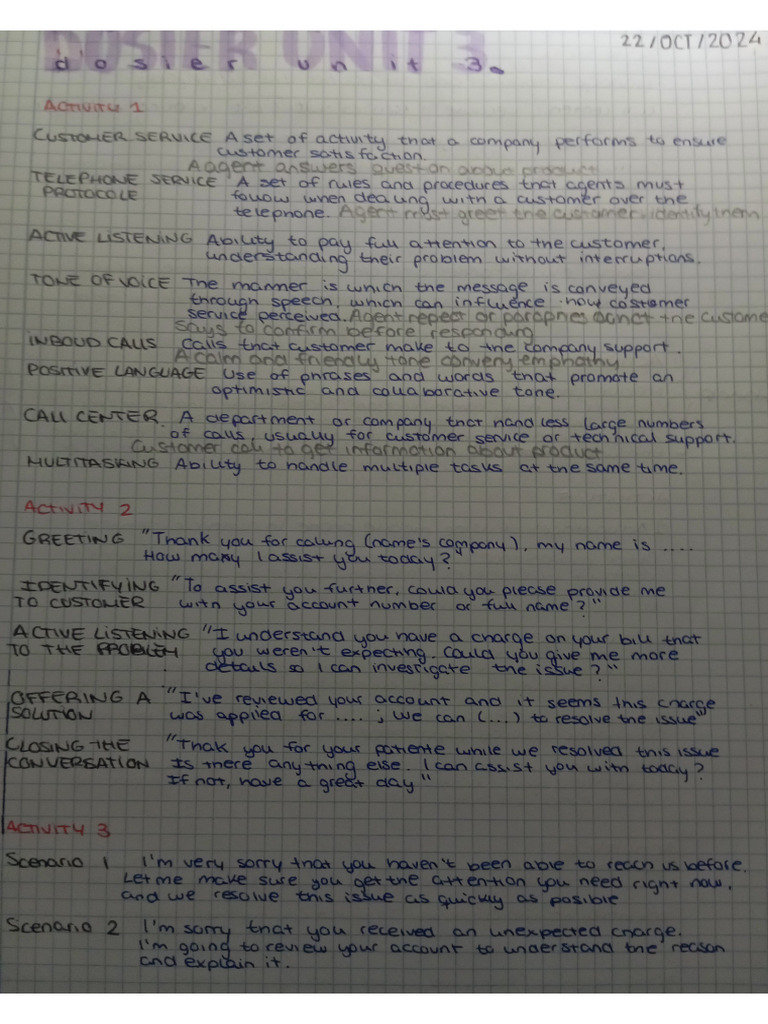 DOSIER UNIT 3.
dosier unit 3.
22/OCT/2024
ACTIVITY 1
CUSTOMER SERVICE A set of activity that a company performs to ensure
customer satisfaction.
A agent answers question about product
TELEPHONE SERVICE A set of rules and procedures that agents must
PROTOCOLE follow when dealing with a customer over the
telephone. Agent must greet the customer, identify them
ACTIVE LISTENING Ability to pay full attention to the customer,
understanding their problem without interruptions.
TONE OF VOICE The manner is which the message is conveyed
through speech, which can influence how costomer
service perceived. Agent repect or the custome
says to confirm before responding
INBOUD CALLS Calls that customer make to the company support.
A calm and friendly tone convery emphathy
POSITIVE LANGUAGE Use of phrases and words that promote an
optimistic and collaborative tone.
CALL CENTER. A department or company that handless large numbers
of calls, usually for customer service or technical support.
Customer call to get information about product
MULTITASKING Ability to handle multiple tasks at the same time.
ACTIVITY 2
GREETING "Thank you for calling (name's company), my name is ....
How many I assist you today?"
IDENTIFYING "To assist you further, could you please provide me
TO CUSTOMER with your account number or full name?"
ACTIVE LISTENING "I understand you have a charge on your bill that
TO THE PROBLEM you weren't expecting. Could you give me more
details so I can investigate the issue?"
OFFERING A "I've reviewed your account and it seems this charge
SOLUTION was applied for ....; we can (...) to resolve the issue"
CLOSING THE "Thak you for your patiente while we resolved this issue
CONVERSATION Is there anything else. I can assist you with today?
If not, have a great day"
ACTIVITY 3
Scenario 1 I'm very sorry that you haven't been able to reach us before.
Let me make sure you get the attention you need right now,
and we resolve this issue as quickly as posible
Scenario 2 I'm sorry that you received an unexpected charge.
I'm going to review your account to understand the reason
and explain it.